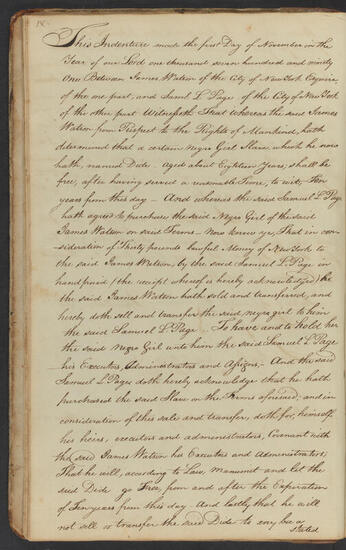 This Indenture made the first Day of November in the
Year of our Lord one thousand seven hundred and ninety
One Between James Watson of the City of New York Esquire
of the one part, and Saml. L. Page of the City of New York
of the other part Witnesseth That whereas the said James
Watson from Respect to the Rights of Mankind, hath
determined that a certain Negro Girl Slave, which he now
hath, named Dide, aged about Eighteen Years, shall be
free, after having served a reasonable Time, to wit, Ten
years from this day - And whereas the said Samuel L. Page
hath agreed to purchase the said Negro Girl of the said
James Watson on said Terms. Now know ye, That in con-
sideration of Thirty pounds lawful Money of New York to
the said James Watson, by the said Samuel L. Page in
hand paid (the receipt whereof is hereby acknowledged) he
the said James Watson hath sold and transferred, and
hereby doth sell and transfer the said negro girl to him
the said Samuel L. Page - To have and to hold her
the said Negro Girl unto him the said Samuel L. Page
his Executors, Administrators and Assigns - And the said
Samuel L. Page doth hereby acknowledge that he hath
purchased the said Slave on the Terms aforesaid; and in
consideration of this sale and transfer, doth for himself
his heirs, executors and administrators, Covenant with
the said James Watson his Executors and Administrators,
That he will, according to Law, manumit and let the
said Dide go Free, from and after the Expiration
of Ten years from this day - And lastly that he will
not sell or transfer the said Dide to any